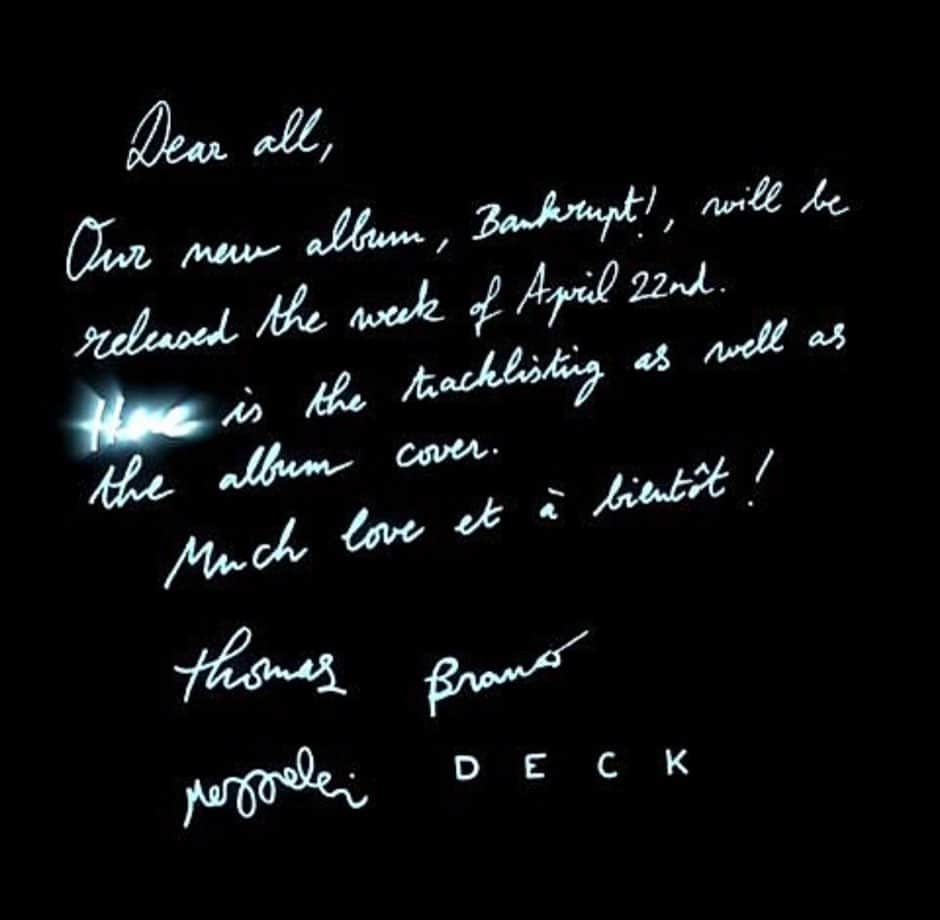 Dear all,
Our new album, Bankrupt!, will be
released the week of April 22nd.
Here is the tracklisting as well as
the album cover.
Much love et à bientôt !
Thomas Branco
mezzalei DECK